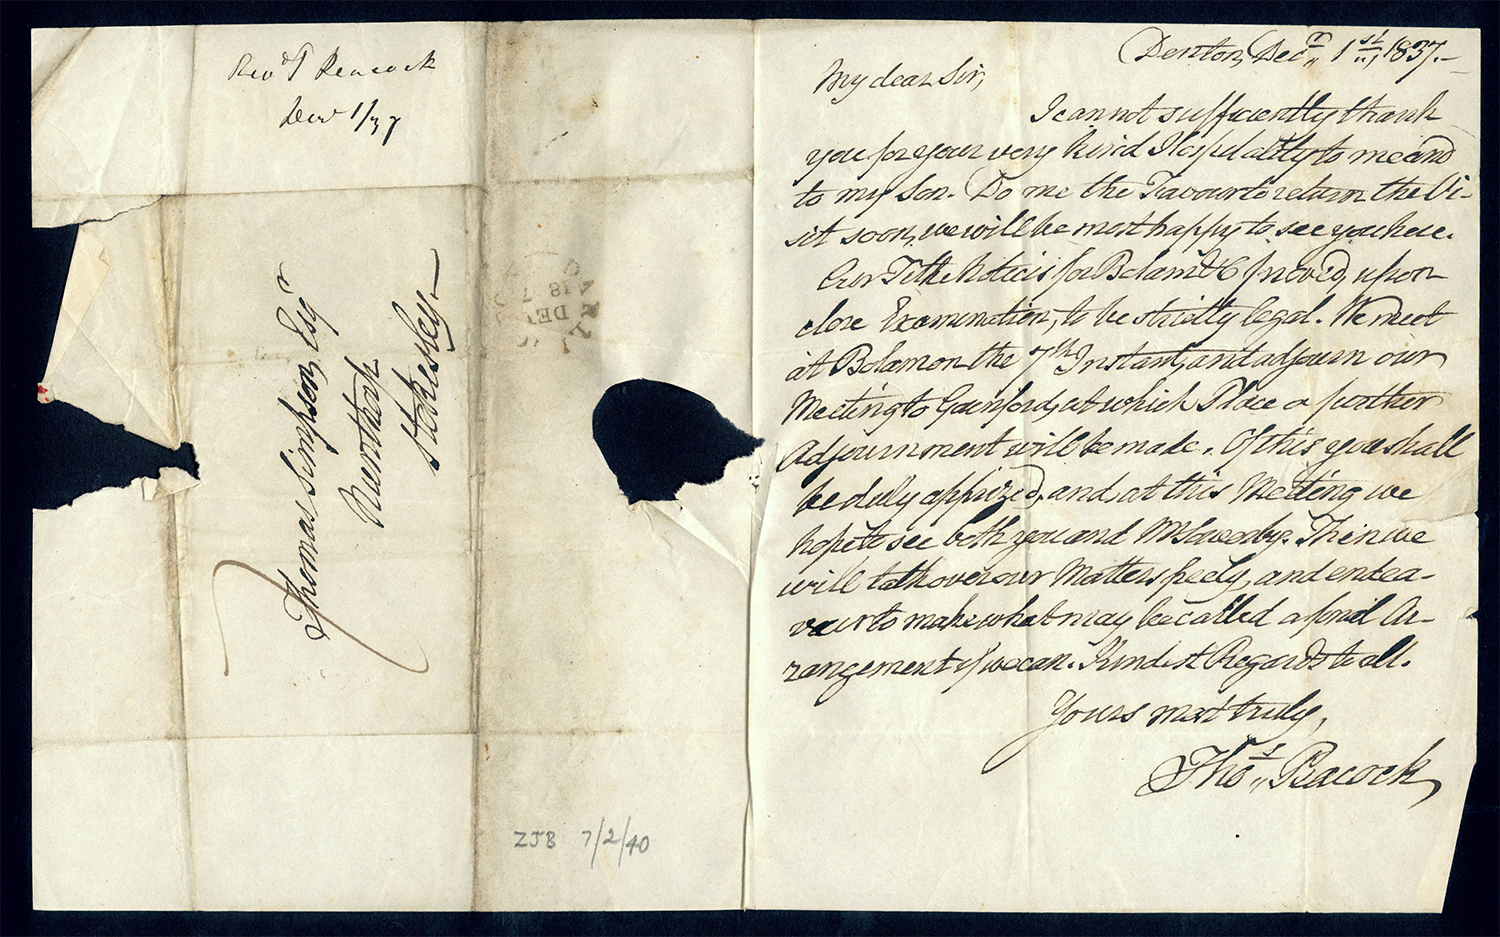 Rev.d T Peacock
Decr 1/37
Thomas Simpson, Esq.r
Nunthorp
Stokesley.
DE
18 7
ZJB 7/2/40
Denton, Dec.r 1st, 1837.
My dear Sir,
I cannot sufficiently thank
you for your very kind Hospitality to me and
to my Son. Do me the Favour to return the Vi-
sit soon, we will be most happy to see you here.
Our Tithe Notice is for Bolam &c proved, upon
close Examination, to be strictly legal. We meet
at Bolam on the 7th Instant, and adjourn our
Meeting to Gainford, at which Place a further
Adjournment will be made. Of this you shall
be duly apprized, and at this Meeting we
hope to see both you and Mr Sowerby. Then we
will talk over our Matters freely, and endea-
vour to make what may be called a final Ar-
rangement if we can. Kindest Regards to all.
Yours most truly,
Tho.s Peacock